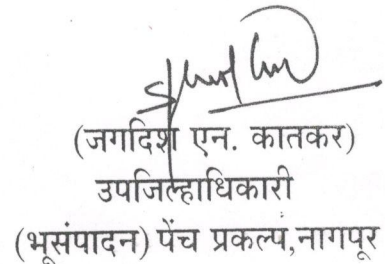 (जगदिश एन. कातकर)
उपजिल्हाधिकारी
(भूसंपादन) पेंच प्रकल्प,नागपूर